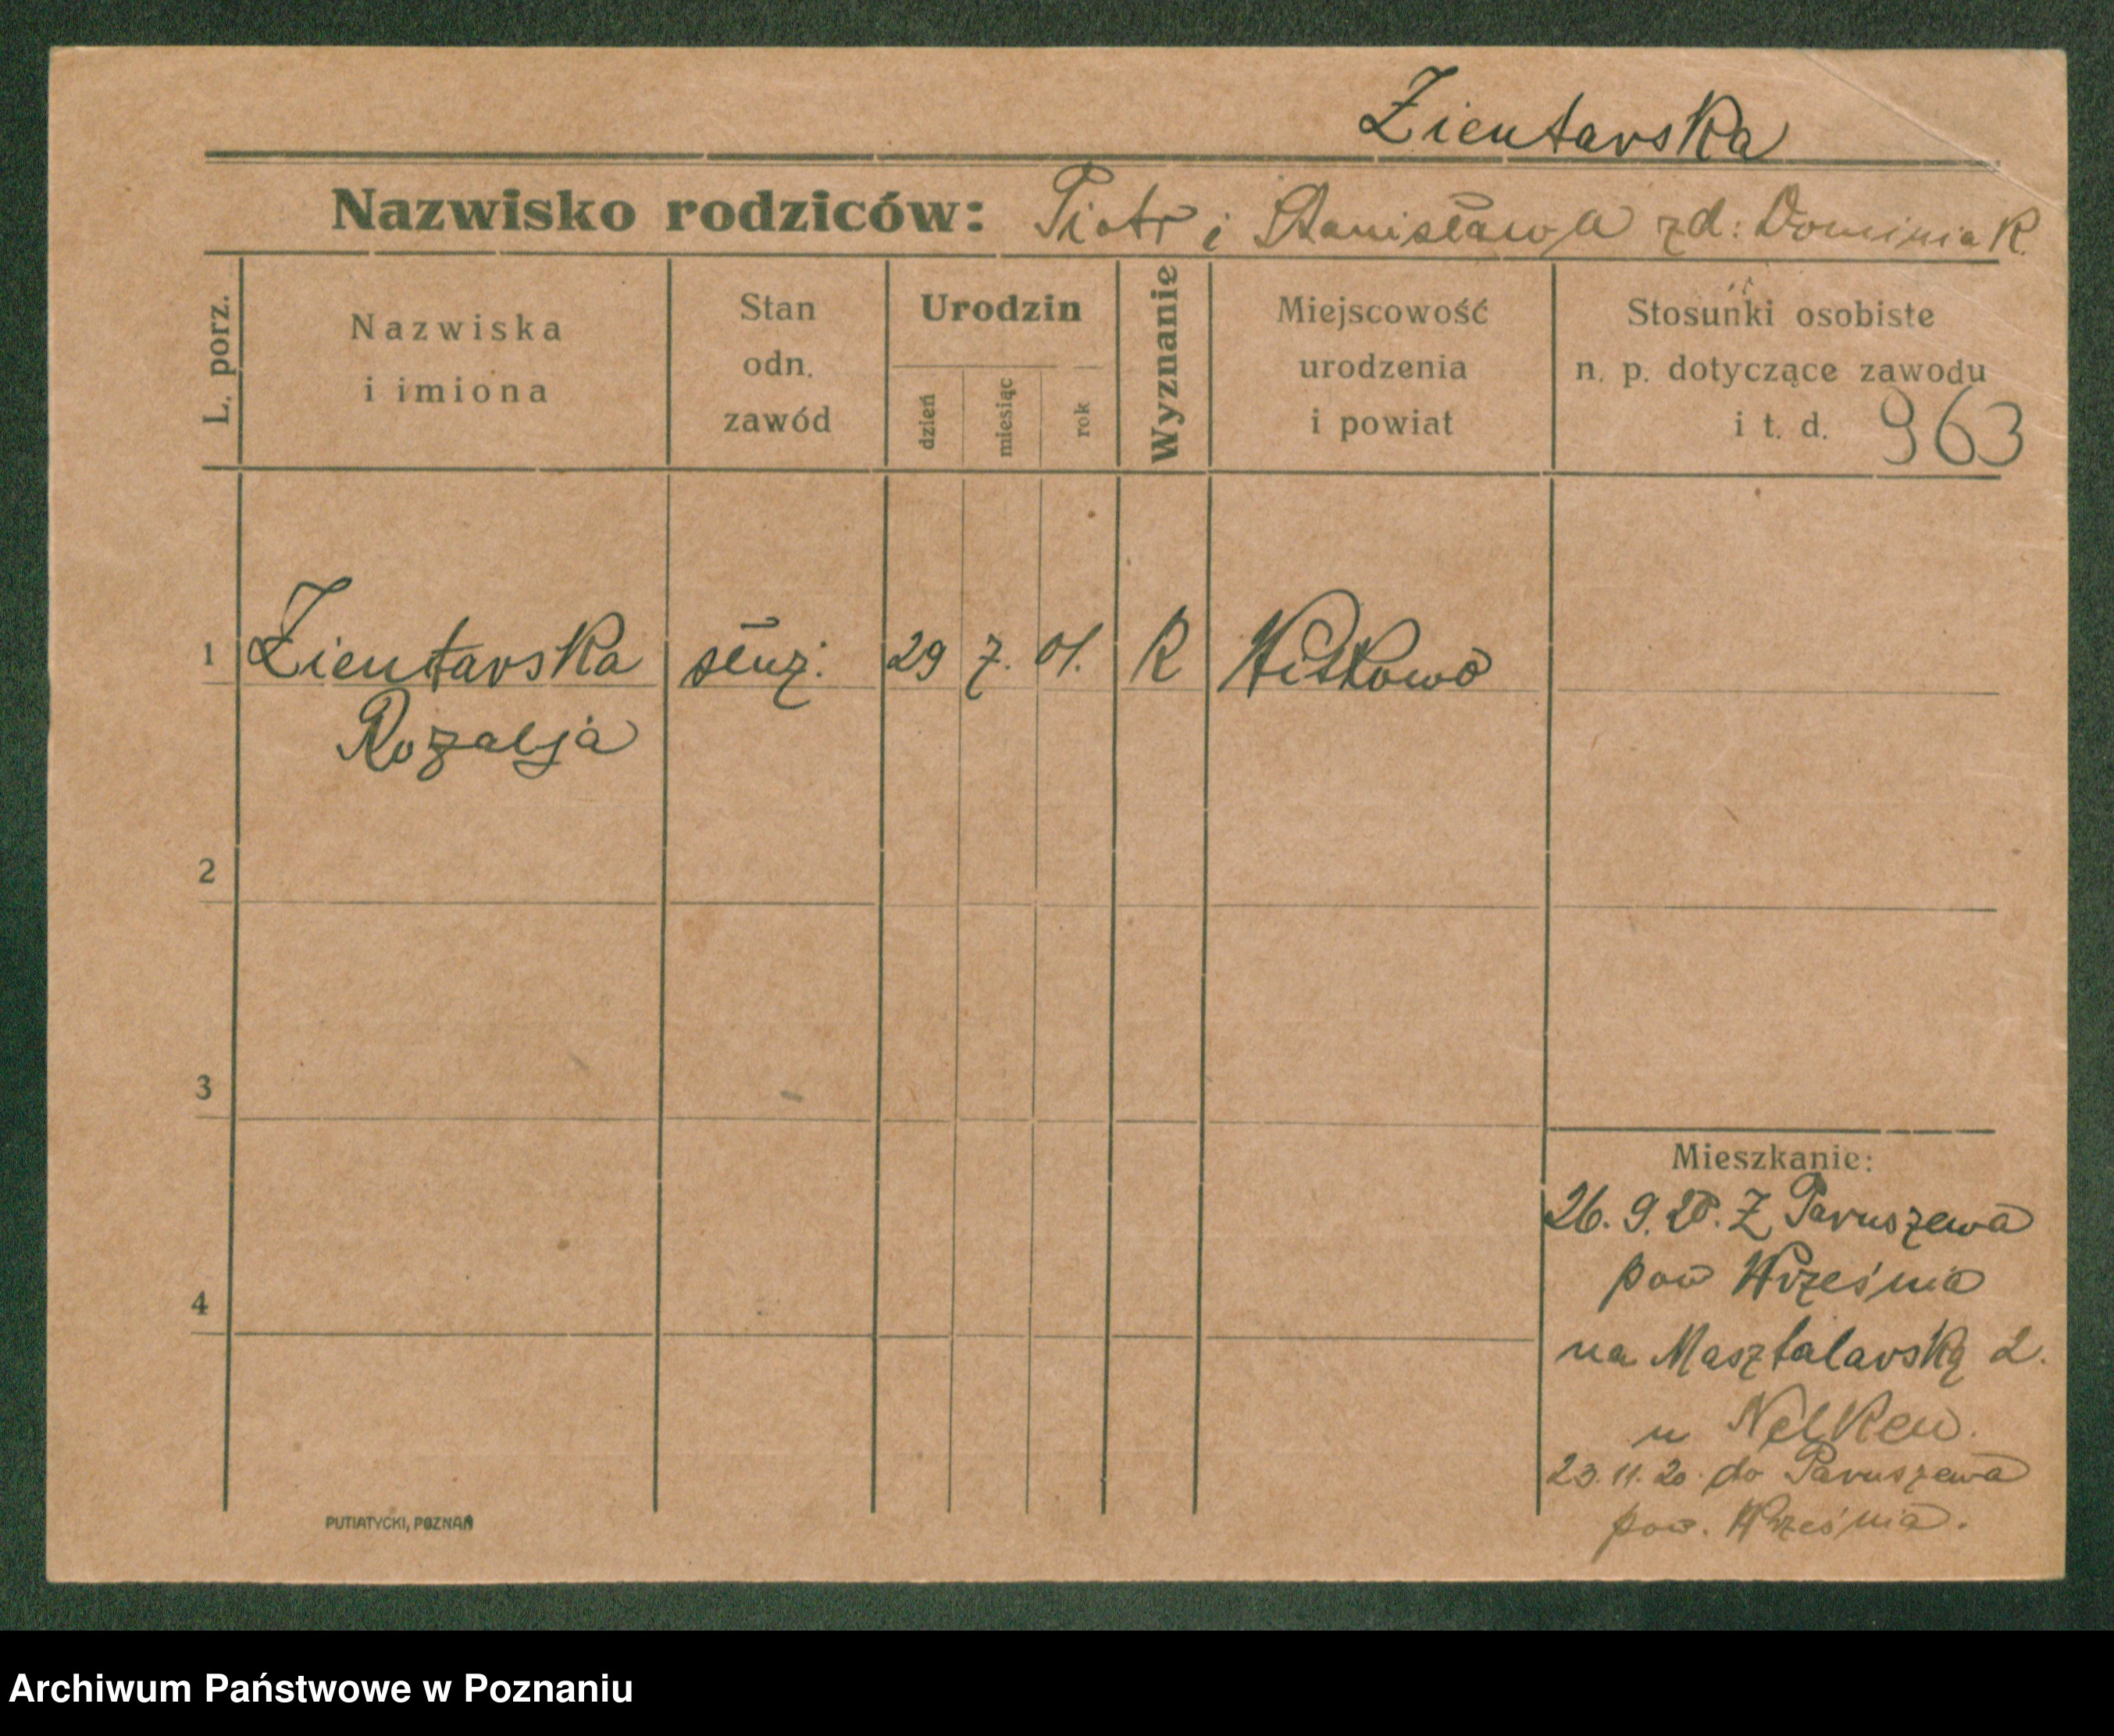 Zientarska
Nazwisko rodziców: Piotr i Stanisława zd: Dominiak
L. porz.
Nazwiska
i imiona
Stan
odn.
zawód
Urodzin
dzień
miesiąc
rok
Wyznanie
Miejscowość
urodzenia
i powiat
Stosunki osobiste
n. p. dotyczące zawodu
i t. d. 963
1 Zientarska służ. 29 7. 01. R Witkowo
Rozalja
2
3
4
Mieszkanie:
26. 9. 20. Z Paruszewa
pow Września
na Masztalarską 2.
u Nelken.
23. 11. 20. do Paruszewa
pow. Września.
PUTIATYCKI, POZNAŃ
Archiwum Państwowe w Poznaniu